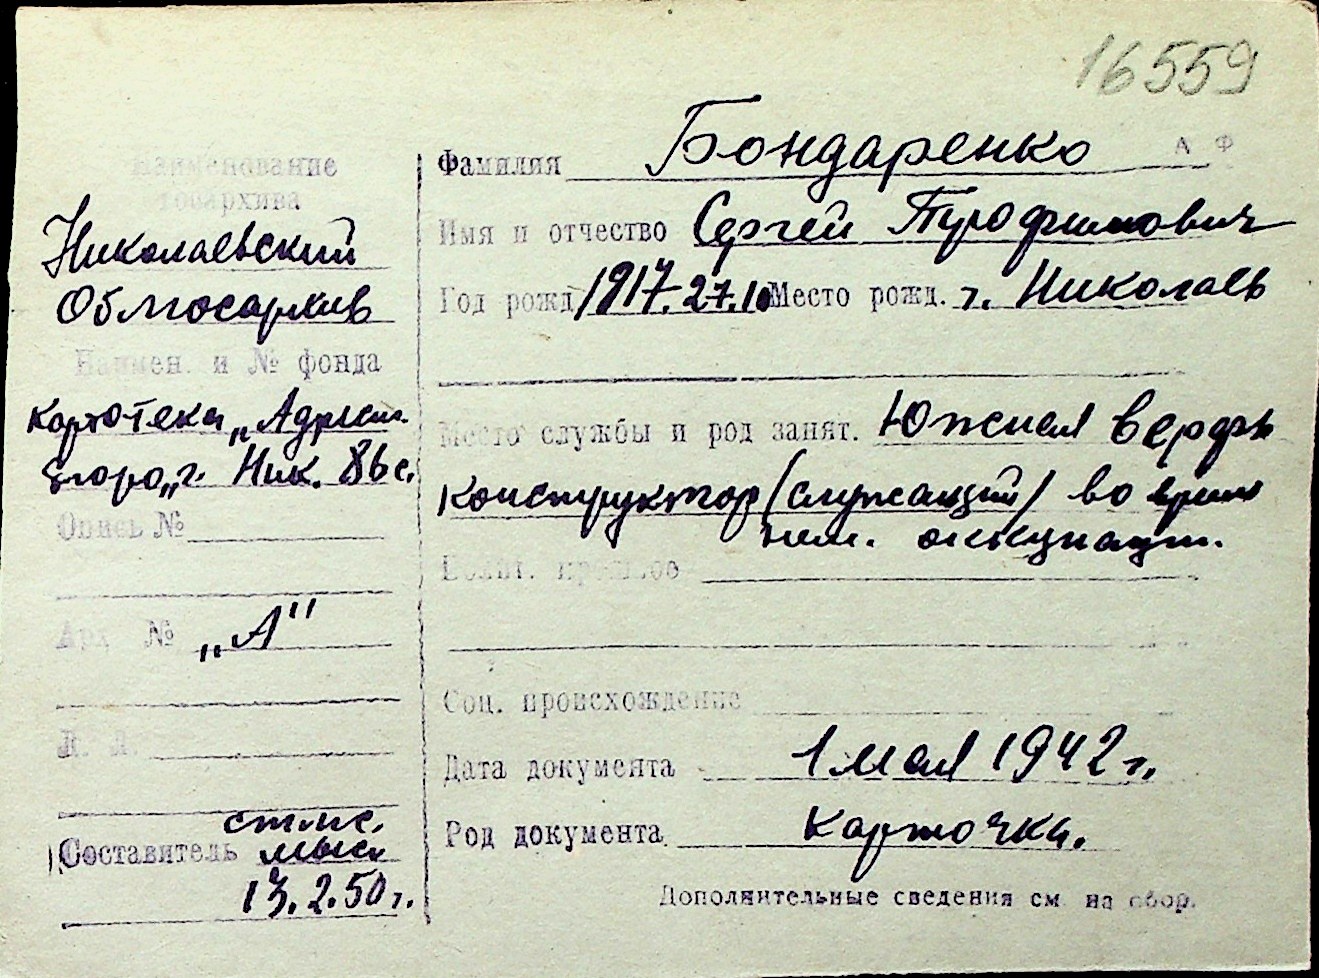 16559
Наименование
госархива
Николаевский
Облгосархив
Наимен. и № фонда
картотека „Адресн.
г. Ник.
Опись №
Арх. № „А"
Л. Л.
Составитель
13.2.50 г.
Фамилия Бондаренко А Ф
Имя и отчество Сергей Трофимович
Год рожд. 1917.27.10 Место рожд. г. Николаев
Место службы и род занят. Южная верфь
конструктор (служащий) во время
нем. оккупации.
Полит. прошлое
Соц. происхождение
Дата документа 1 мая 1942 г.
Род документа карточка.
Дополнительные сведения см. на обор.